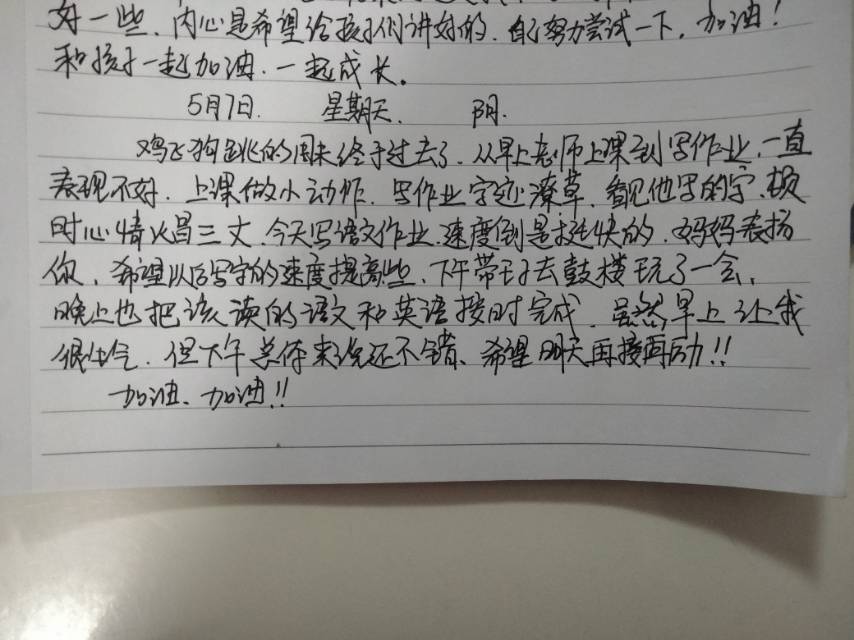 好一些，内心是希望给孩子们讲好的，自己努力尝试一下，加油！
和孩子一起加油，一起成长。
5月7日. 星期天. 阴.
鸡飞狗跳的周末终于过去了，从早上老师上课到写作业，一直
表现不好，上课做小动作，写作业字迹潦草，看见他写的字，顿
时心情火冒三丈，今天写语文作业，速度倒是挺快的，妈妈表扬
你，希望以后写字的速度提高些，下午带去鼓楼玩了一会，
晚上也把该读的语文和英语按时完成，虽然早上让我
很生气，但下午总体来说还不错、希望明天再接再厉!!
加油、加油!!